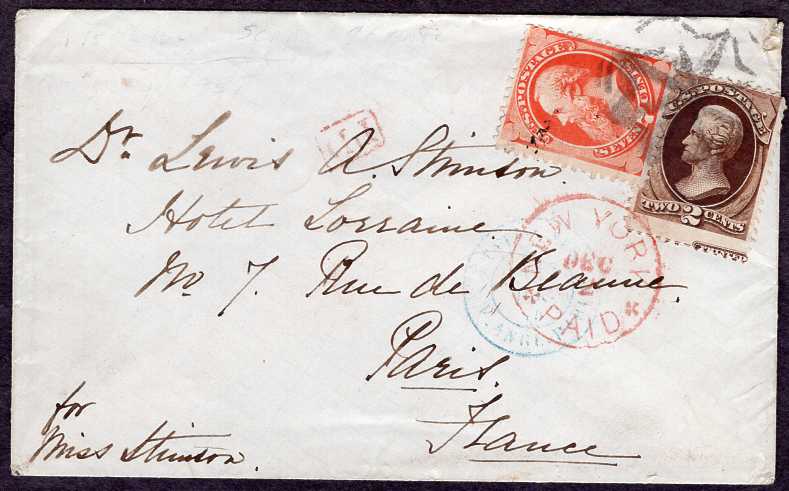 Dr. Lewis A. Stimson.
Hotel Lorraine
No 7. Rue de Beaune.
Paris.
France
for
Miss Stimson.
U.S. POSTAGE
SEVEN CENTS
U.S. POSTAGE
TWO 2 CENTS
NEW YORK
DEC
2
PAID